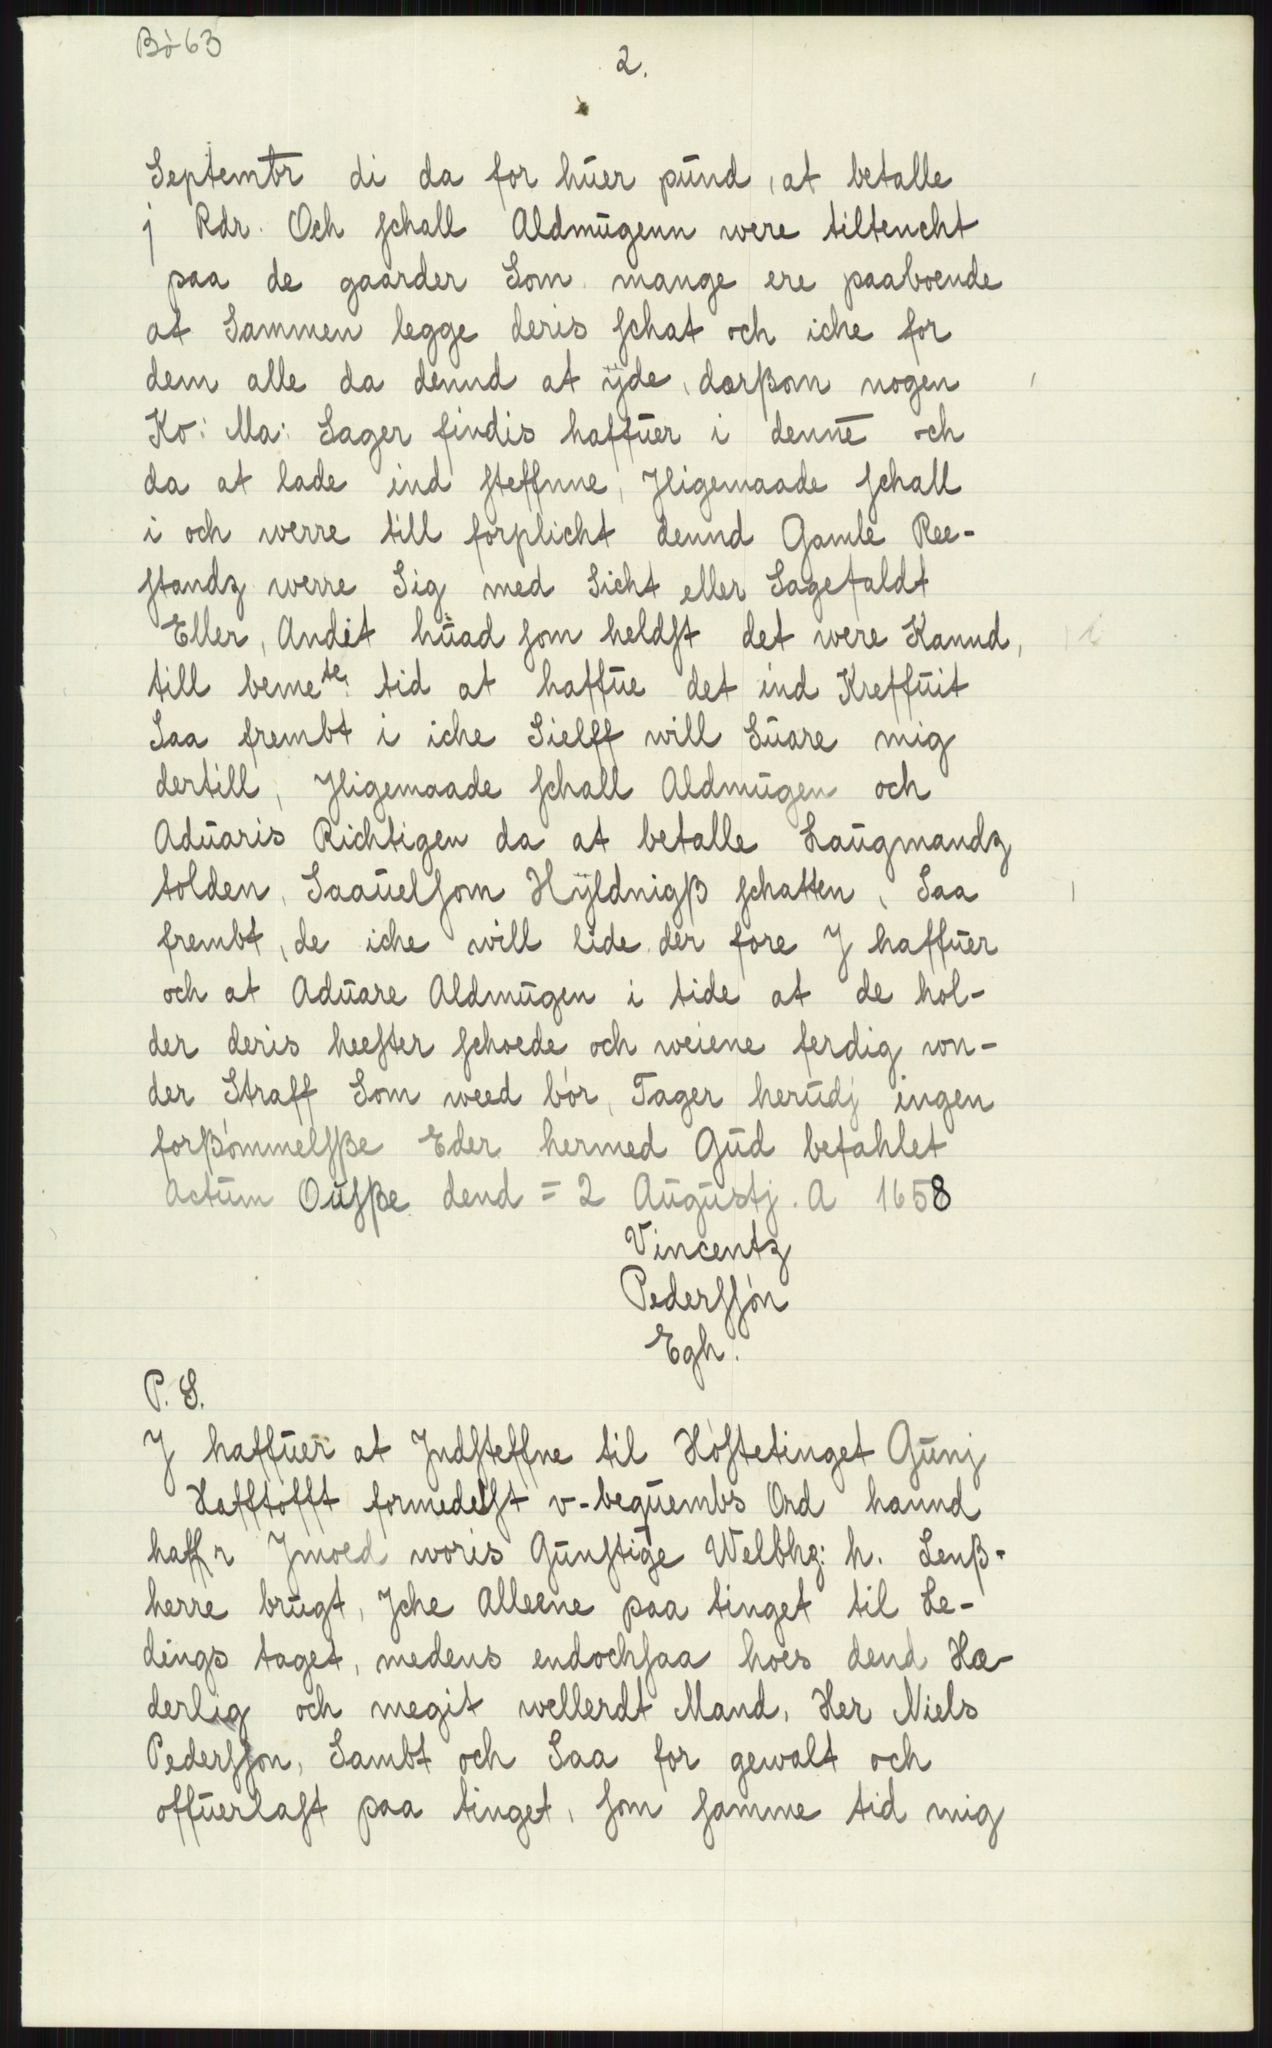 Bø 63
2.
Septembr di da for huer pund, at betalle
j Rdr. Och schall Aldmugenn were tiltencht
paa de gaarder Som mange ere paaboende
at Sammen legge deris schat och iche for
dem alle da dennd at ÿde, dersßom nogen
Ko: Ma: Sager findis haffuer i denne och
da at lade ind steffnne, Jligemaade schall
i och werre till forplicht dennd Gamle Ree-
standz werre Sig med Sicht eller Sagefaldt
Eller, Andet huad som heldst det were Kannd,
till beme te: tid at haffue det ind Kreffuit
Saa frembt i iche Sielff will Suare mig
dertill, Jligemaade schall Aldmugen och
Aduaris Richtigen da at betalle Laugmandz
tolden, Saauelsom Hÿldnigß schatten, Saa
frembt, de iche will lide der fore J haffuer
och at Aduare Aldmugen i tide at de hol-
der deris heester schoede och weiene ferdig von-
der Straff Som weed bør, Tager herudj ingen
forßømmelsße Eder hermed Gud befahlet
Actum Oußße dend = 2 Augustj. A 1658
Vincentz
Pederssøn
Egh.
P. S.
J haffuer at Jndsteffne til Høstetinget Gunj
Hafftofft formedelst v-bequembs Ord hannd
haffr Jmoed woris Gunstige Welbhz: h. Lenß-
herre brugt, Jche Alleene paa tinget til Le-
dings taget, medens endochsaa hoes dend Hæ-
derlig och megit wellerdt Mand, Her Niels
Pedersson, Sambt och Saa for gewalt och
offuerlast paa tinget, som samme tid mig